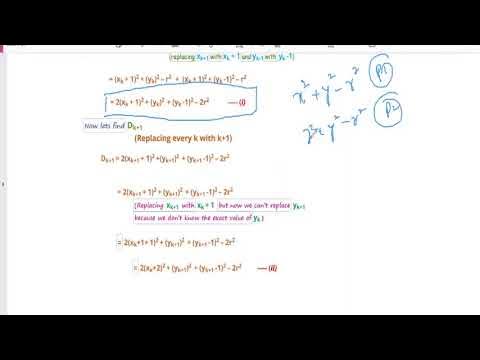 (replacing xₖ₊₁ with xₖ + 1 and yₖ₊₁ with yₖ -1)
= (xₖ + 1)² + (yₖ)² – r² + (xₖ + 1)² + (yₖ -1)² – r²
= 2(xₖ + 1)² + (yₖ)² + (yₖ -1)² – 2r² ---- (i)
x² + y² - r² P1
x² + y² - r² P2
Now lets find Dₖ₊₁
(Replacing every k with k+1)
Dₖ₊₁ = 2(xₖ₊₁ + 1)² +(yₖ₊₁)² + (yₖ₊₁ -1)² – 2r²
= 2(xₖ₊₁ + 1)² +(yₖ₊₁)² + (yₖ₊₁ -1)² – 2r²
(Replacing xₖ₊₁ with xₖ + 1 but now we can't replace yₖ₊₁
because we don't know the exact value of yₖ)
= 2(xₖ+1+ 1)² + (yₖ₊₁)² + (yₖ₊₁ -1)² – 2r²
= 2(xₖ+2)² + (yₖ₊₁)² + (yₖ₊₁ -1)² – 2r² ---- (ii)